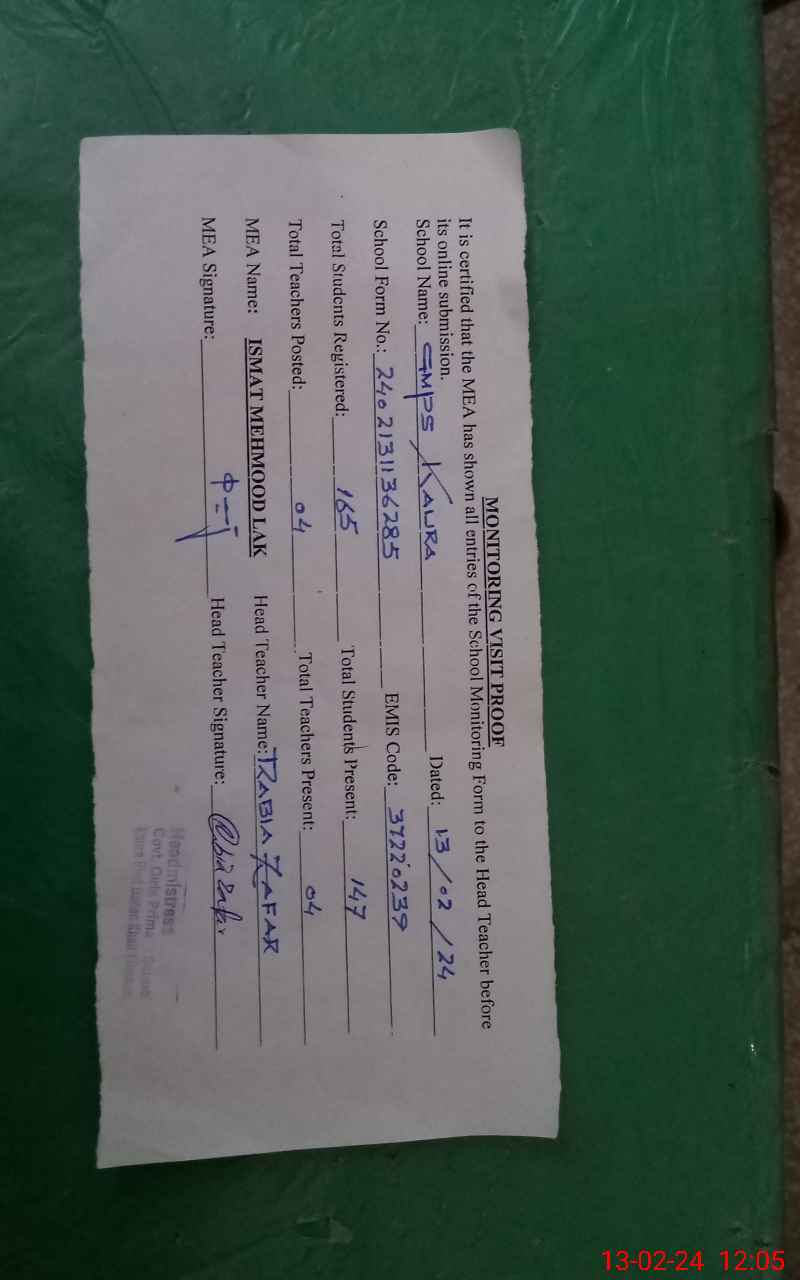 MONITORING VISIT PROOF
It is certified that the MEA has shown all entries of the School Monitoring Form to the Head Teacher before
its online submission.
School Name: GMPS KAURA Dated: 13/02/24
School Form No.: 2402131136285 EMIS Code: 37220239
Total Students Registered: 165 Total Students Present: 147
Total Teachers Posted: 04 Total Teachers Present: 04
MEA Name: ISMAT MEHMOOD LAK Head Teacher Name: RABIA ZAFAR
MEA Signature: Head Teacher Signature: Rabia Zafar
Headmistress
Govt. Girls Prima
13-02-24 12:05